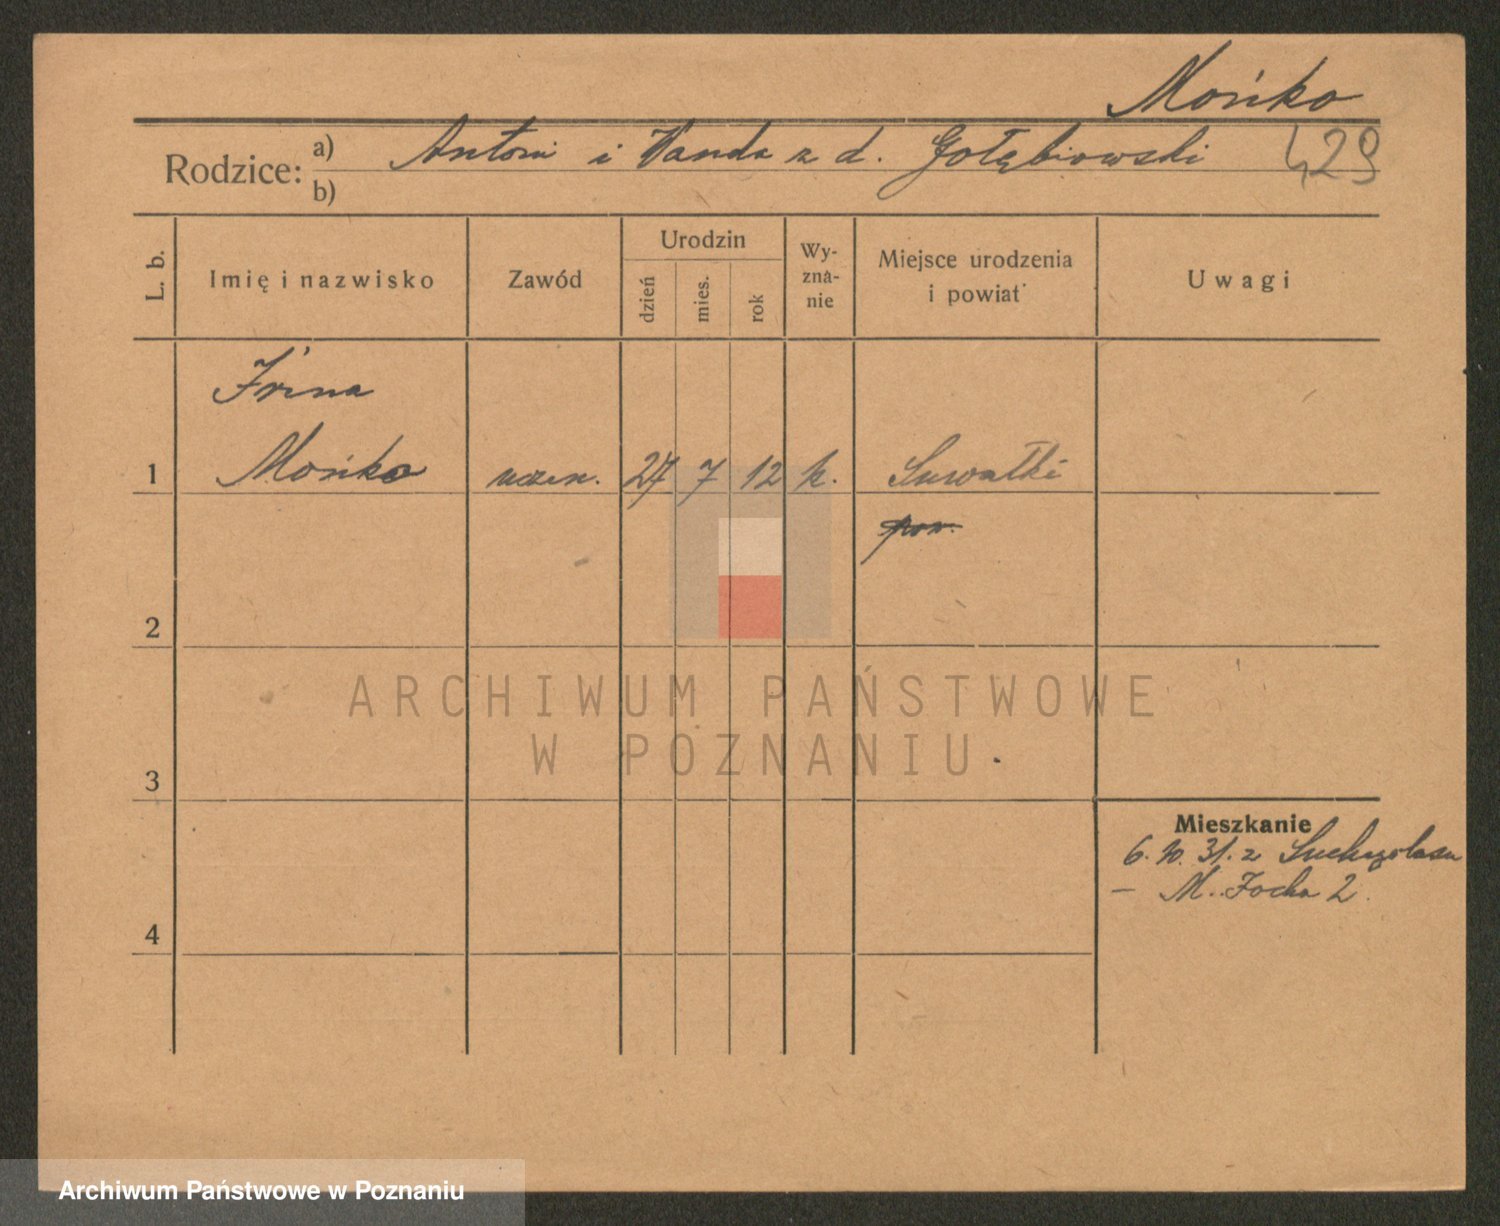 Mońko
Rodzice: a) Antoni i Wanda z d. Gołębiowski 429
b)
L. b. Imię i nazwisko Zawód Urodzin dzień mies. rok Wy-zna-nie Miejsce urodzenia i powiat Uwagi
Irena
1 Mońko uczen. 27 7 12 k. Suwałki
pow.
2
ARCHIWUM PAŃSTWOWE
W POZNANIU
3
Mieszkanie
6. 10. 31. z
— M. Focha 2.
4
Archiwum Państwowe w Poznaniu